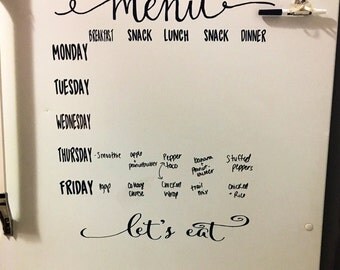 menu
BREAKFAST SNACK LUNCH SNACK DINNER
MONDAY
TUESDAY
WEDNESDAY
THURSDAY - Smoothie apple + peanutbutter Pepper taco banana + peanut-butter Stuffed peppers
FRIDAY eggs cottage cheese chicken wrap trail mix chicken + Rice
let's eat